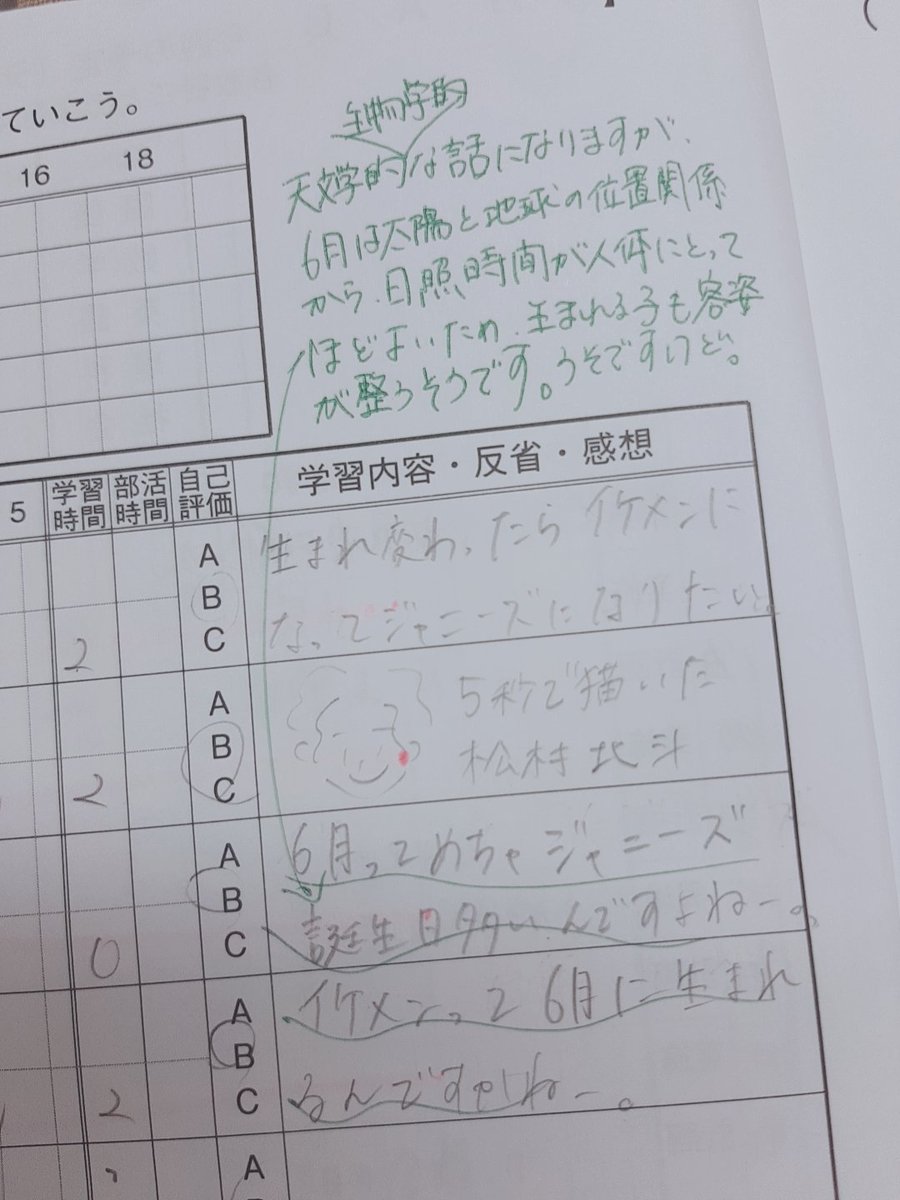 ていこう。
16 18
生物学的
天文学的な話になりますが、
6月は太陽と地球の位置関係
から、日照時間が人体にとって
ほどよいため、生まれる子も容姿
が整うそうです。うそですけど。
5 学習時間 部活時間 自己評価 学習内容・反省・感想
A
B
C
2
生まれ変わったらイケメンに
なってジャニーズになりたい。
A
B
C
2
5秒で描いた
松村北斗
A
B
C
0
6月ってめちゃジャニーズ
誕生日多いんですよねー。
A
B
C
2
イケメンって6月に生まれ
るんですかねー。
A
B